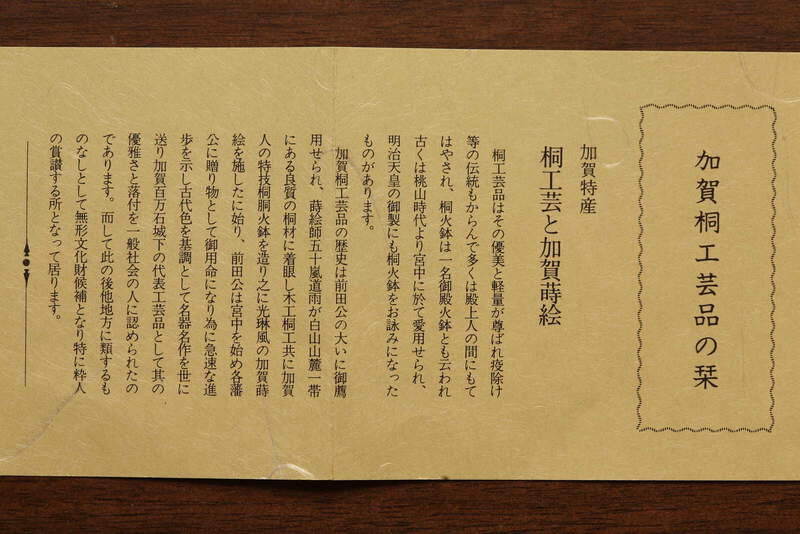 加賀桐工芸品の栞
加賀特産
桐工芸と加賀蒔絵
桐工芸品はその優美と軽量が尊ばれ疫除け
等の伝統もからんで多くは殿上人の間にもて
はやされ、桐火鉢は一名御殿火鉢とも云われ
古くは桃山時代より宮中に於て愛用せられ、
明治天皇の御製にも桐火鉢をお詠みになった
ものがあります。
加賀桐工芸品の歴史は前田公の大いに御薦
用せられ、蒔絵師五十嵐道雨が白山山麓一帯
にある良質の桐材に着眼し木工桐工共に加賀
人の特技桐胴火鉢を造り之に光琳風の加賀蒔
絵を施したに始り、前田公は宮中を始め各藩
公に贈り物として御用命になり為に急速な進
歩を示し古代色を基調として名器名作を世に
送り加賀百万石城下の代表工芸品として其の
優雅さと落付を一般社会の人に認められたの
であります。而して此の後他地方に類するも
のなしとして無形文化財候補となり特に粋人
の賞讃する所となって居ります。